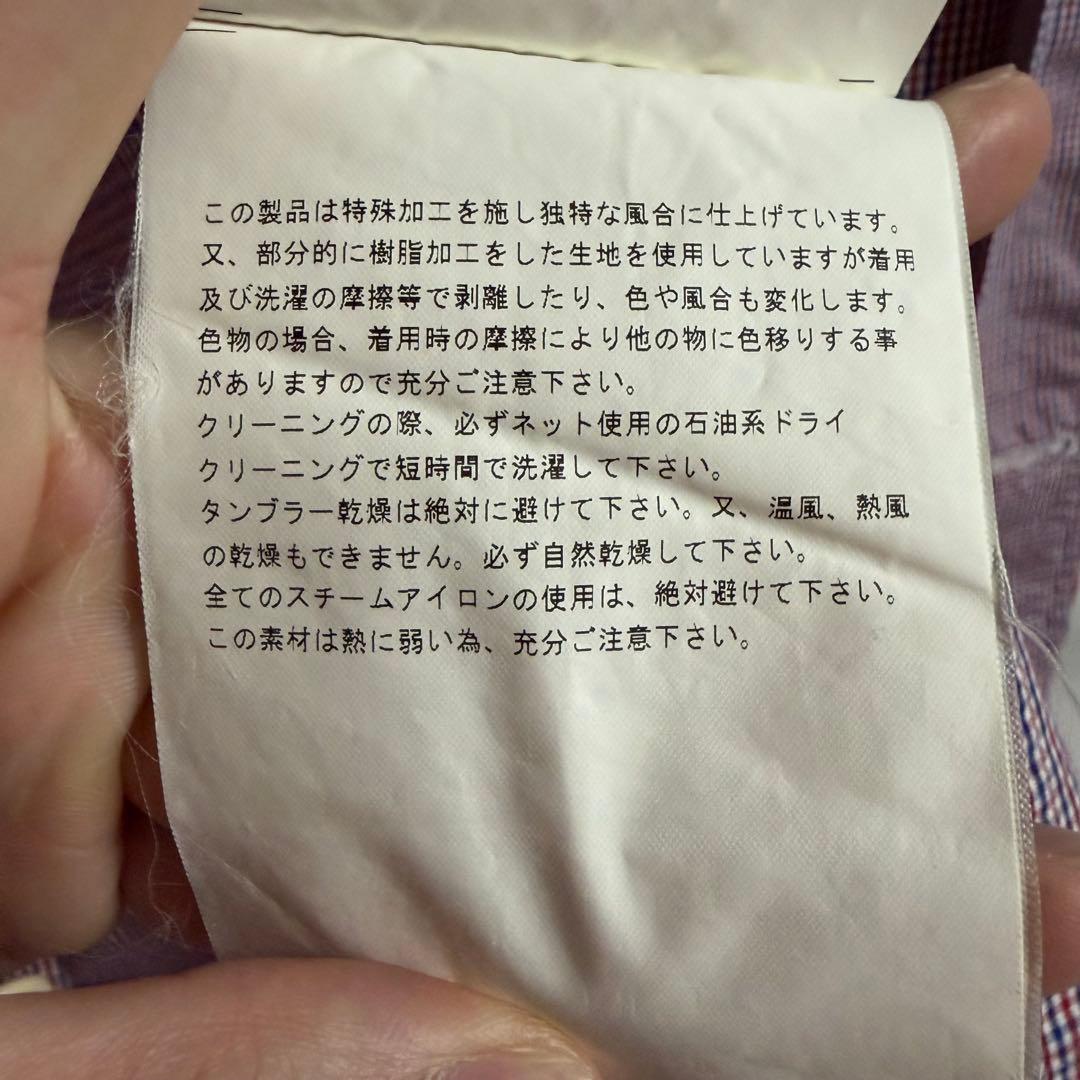 この製品は特殊加工を施し独特な風合に仕上げています。
又、部分的に樹脂加工をした生地を使用していますが着用
及び洗濯の摩擦等で剥離したり、色や風合も変化します。
色物の場合、着用時の摩擦により他の物に色移りする事
がありますので充分ご注意下さい。
クリーニングの際、必ずネット使用の石油系ドライ
クリーニングで短時間で洗濯して下さい。
タンブラー乾燥は絶対に避けて下さい。又、温風、熱風
の乾燥もできません。必ず自然乾燥して下さい。
全てのスチームアイロンの使用は、絶対避けて下さい。
この素材は熱に弱い為、充分ご注意下さい。